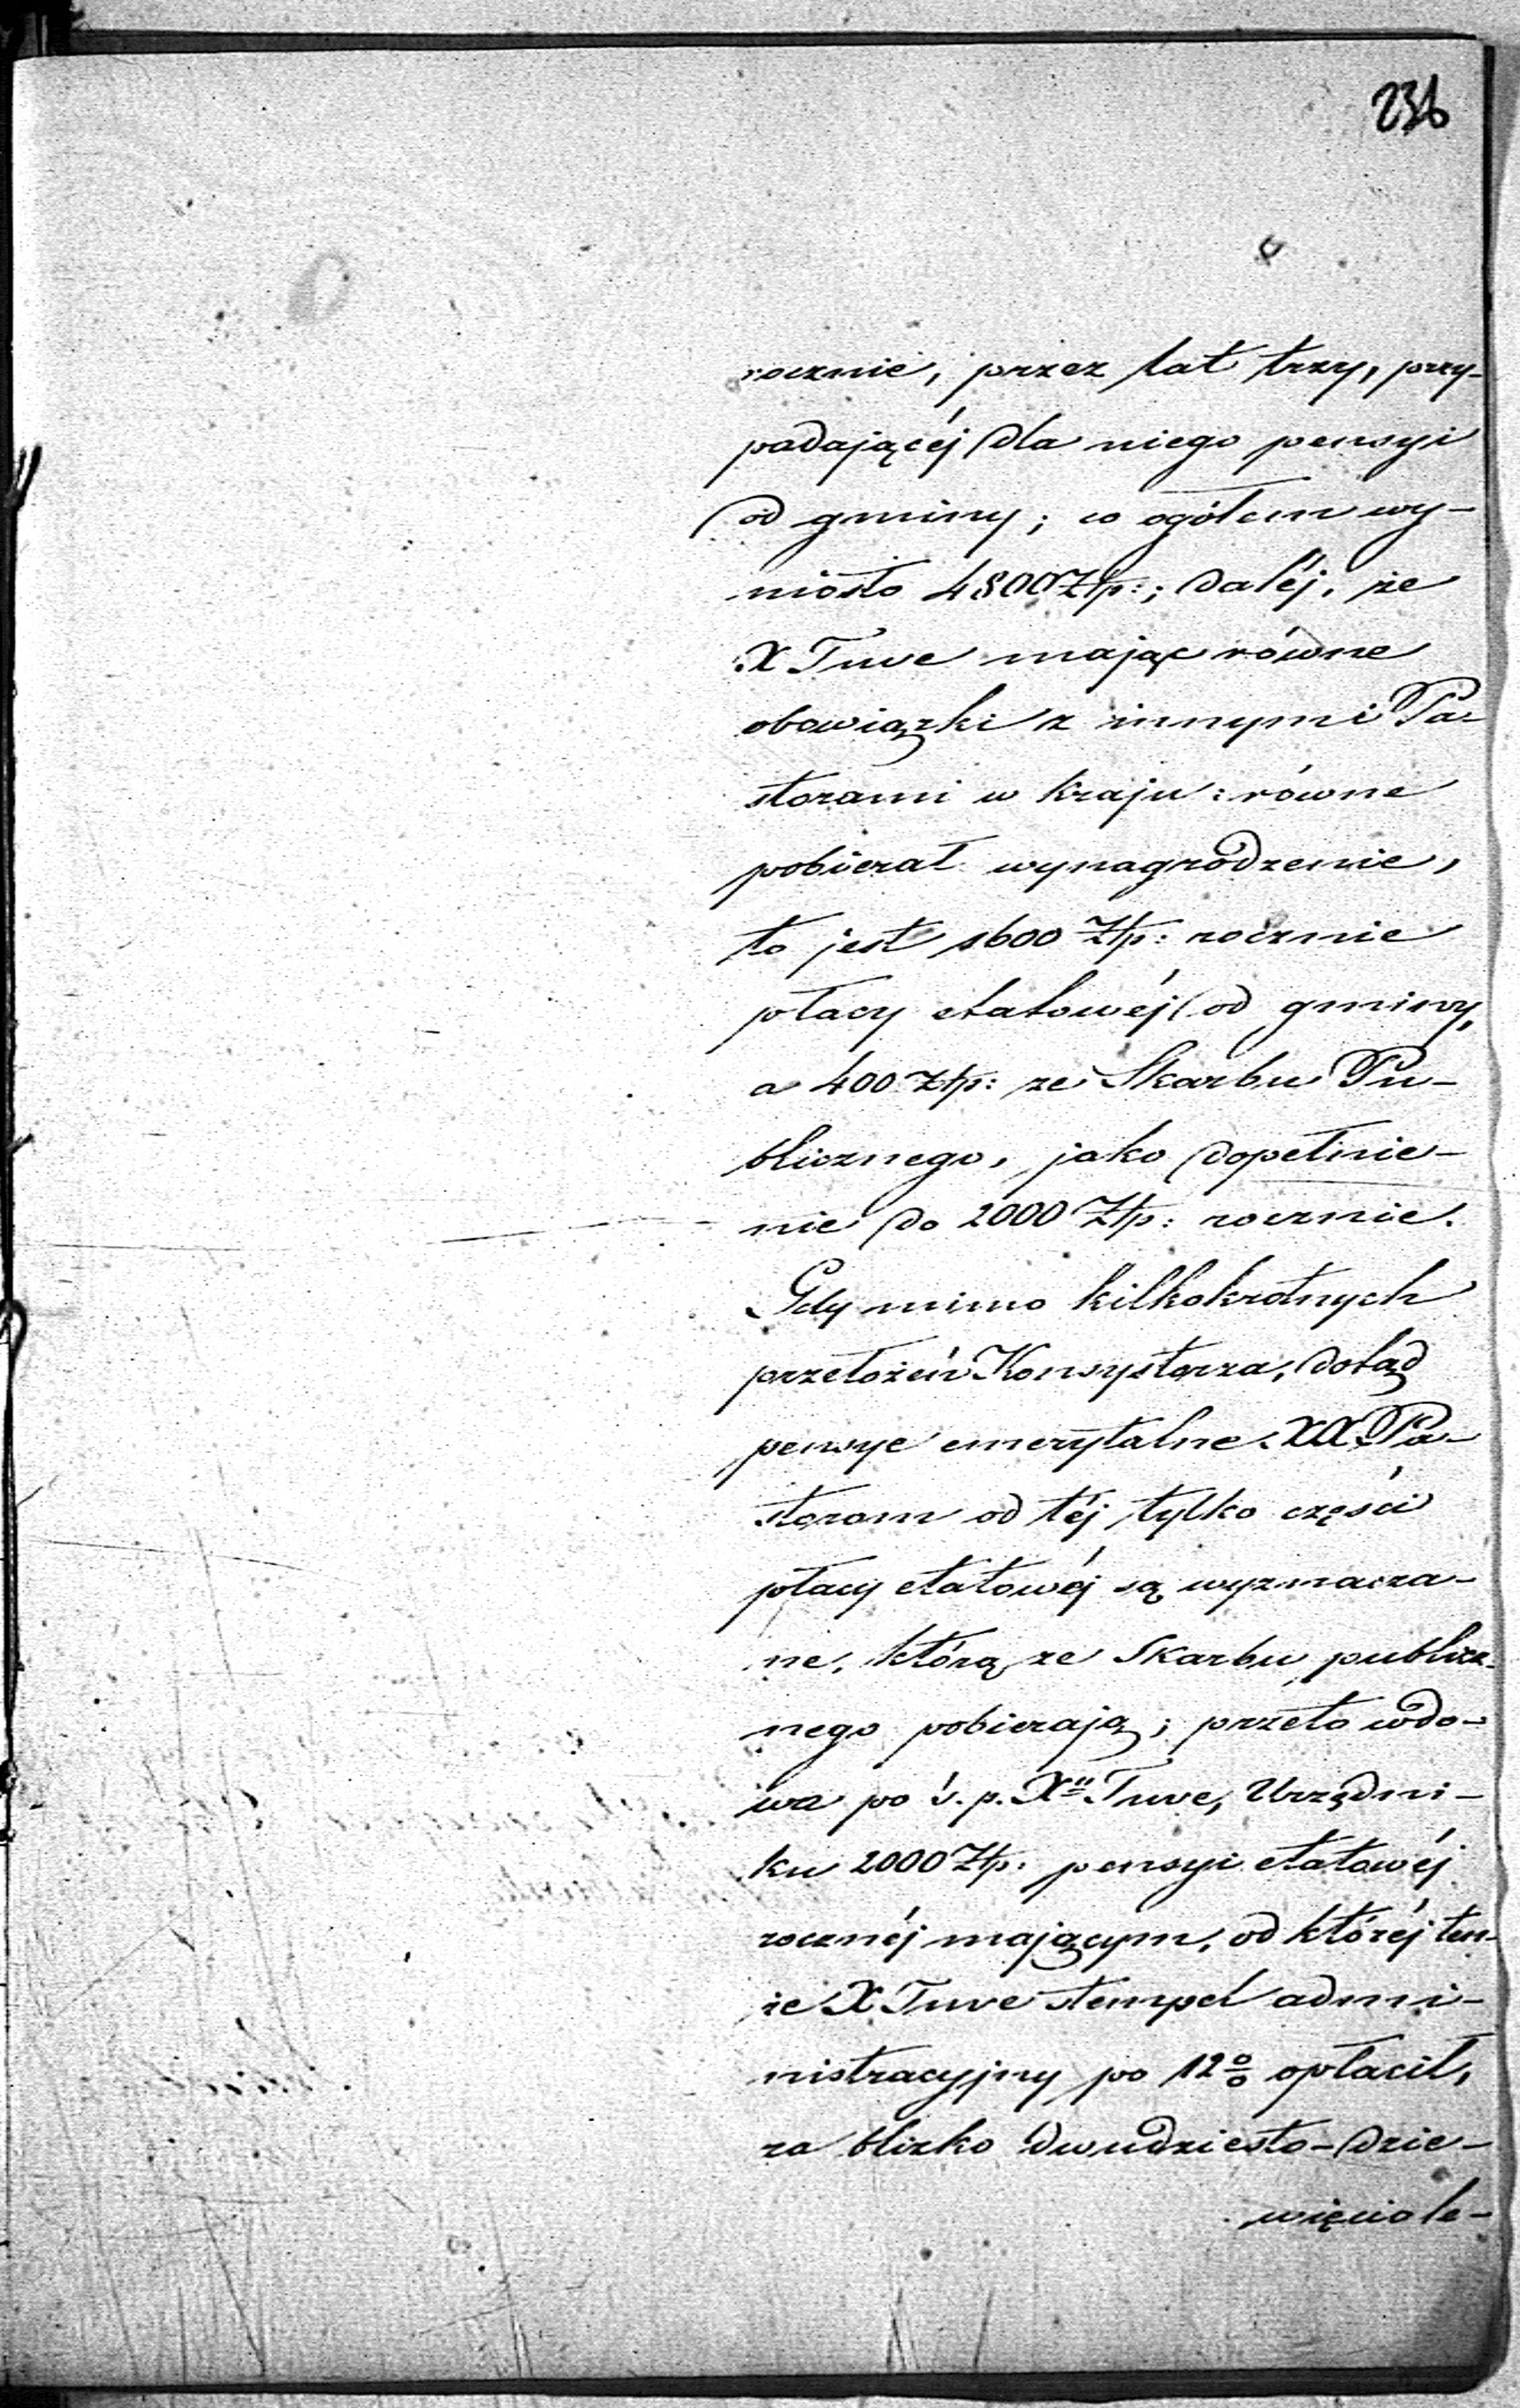 236
rocznie, przez lat trzy, przy-
padającéj dla niego pensyi
od gminy; co ogółem wy-
niosło 4800 Złp:; daléj, że
X Tuve mając równe
obowiązki z innymi Pa-
storami w kraju: równe
pobierał wynagrodzenie,
to jest 1600 Złp: rocznie
płacy etatowéj od gminy,
a 400 Złp: ze Skarbu Pu-
blicznego, jako dopełnie-
nie do 2000 Złp: rocznie.
Gdy mimo kilkokrotnych
przełożeń Konsystorza, dotąd
pensye emerytalne XX. Pa-
storom od téj tylko części
płacy etatowéj są wyznacza-
ne, którą ze Skarbu publicz-
nego pobierają; przeto wdo-
wa po ś. p. Xu Tuve, Urzędni-
ku 2000 Złp: pensyi etatowéj
rocznéj mającym, od któréj ten-
że X Tuve stempel admi-
nistracyjny po 12% opłacił,
za blizko dwudziesto-dzie-
więciole-